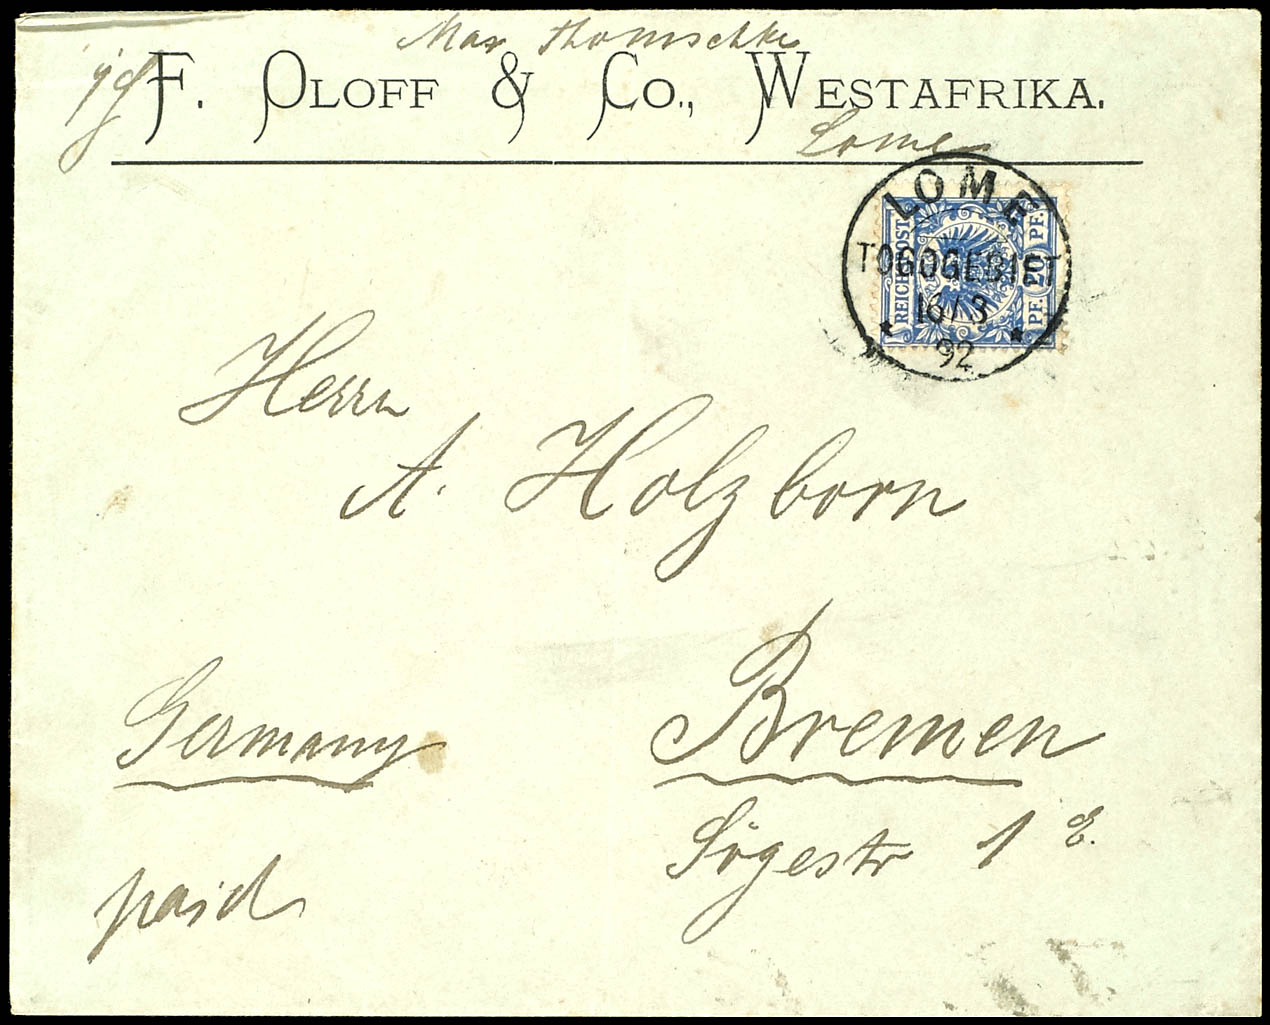 Max Thomschke
F. OLOFF & Co., WESTAFRIKA.
Lome
LOME
TOGOGEBIET
16/3
92
REICHSPOST
PF. 20 PF.
Herrn
A. Holzborn
Germany
Bremen
Sögestr 1 E.
paid